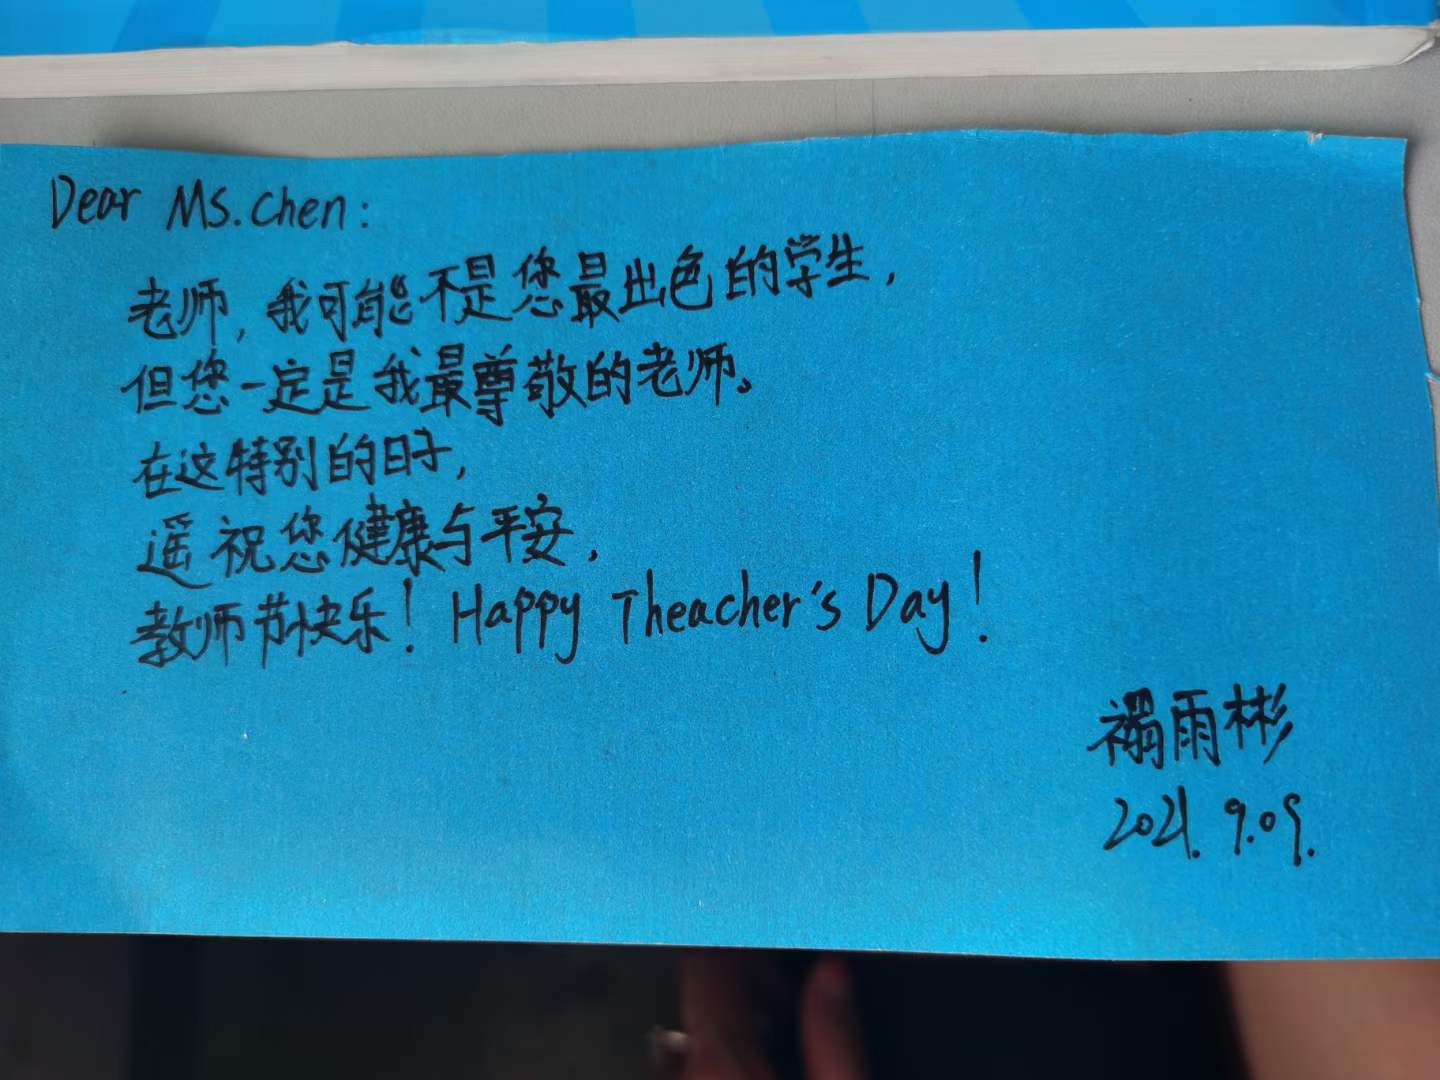 Dear Ms. Chen:
老师,我可能不是您最出色的学生,
但您一定是我最尊敬的老师。
在这特别的日子,
遥祝您健康与平安,
教师节快乐! Happy Theacher's Day!
褟雨彬
2021. 9.09.